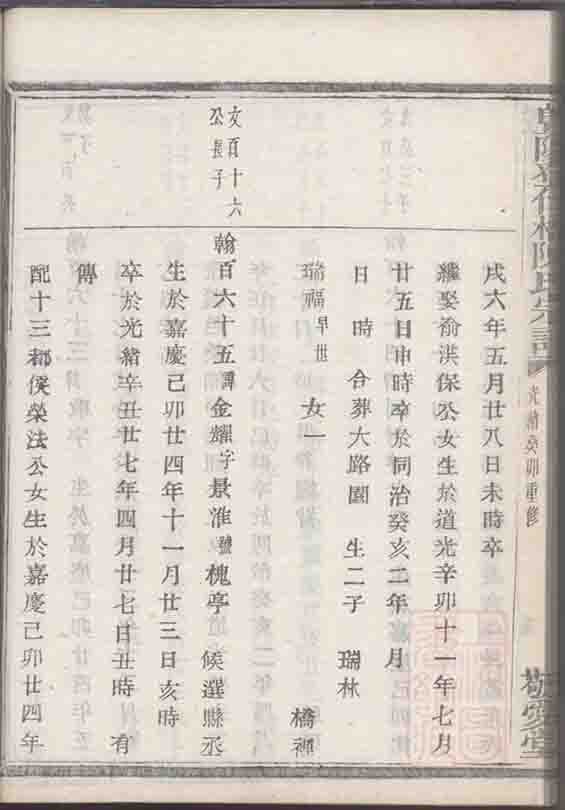 戌六年五月廿八日未時卒
繼娶俞洪保公女生於道光辛卯十一年七月
廿五日申時卒於同治癸亥二年 月
日 時 合葬大路園 生二子 瑞林
瑞福早世 女一 橋裡
文百十六公長子
翰百六十五諱金耀字景淮號槐亭 候選縣丞
生於嘉慶己卯廿四年十一月廿三日亥時
卒於光緒辛丑廿七年四月廿七日丑時 有
傳
配十三都侯榮法公女生於嘉慶己卯廿四年
陳氏宗譜
光緒癸卯重修
敬愛堂